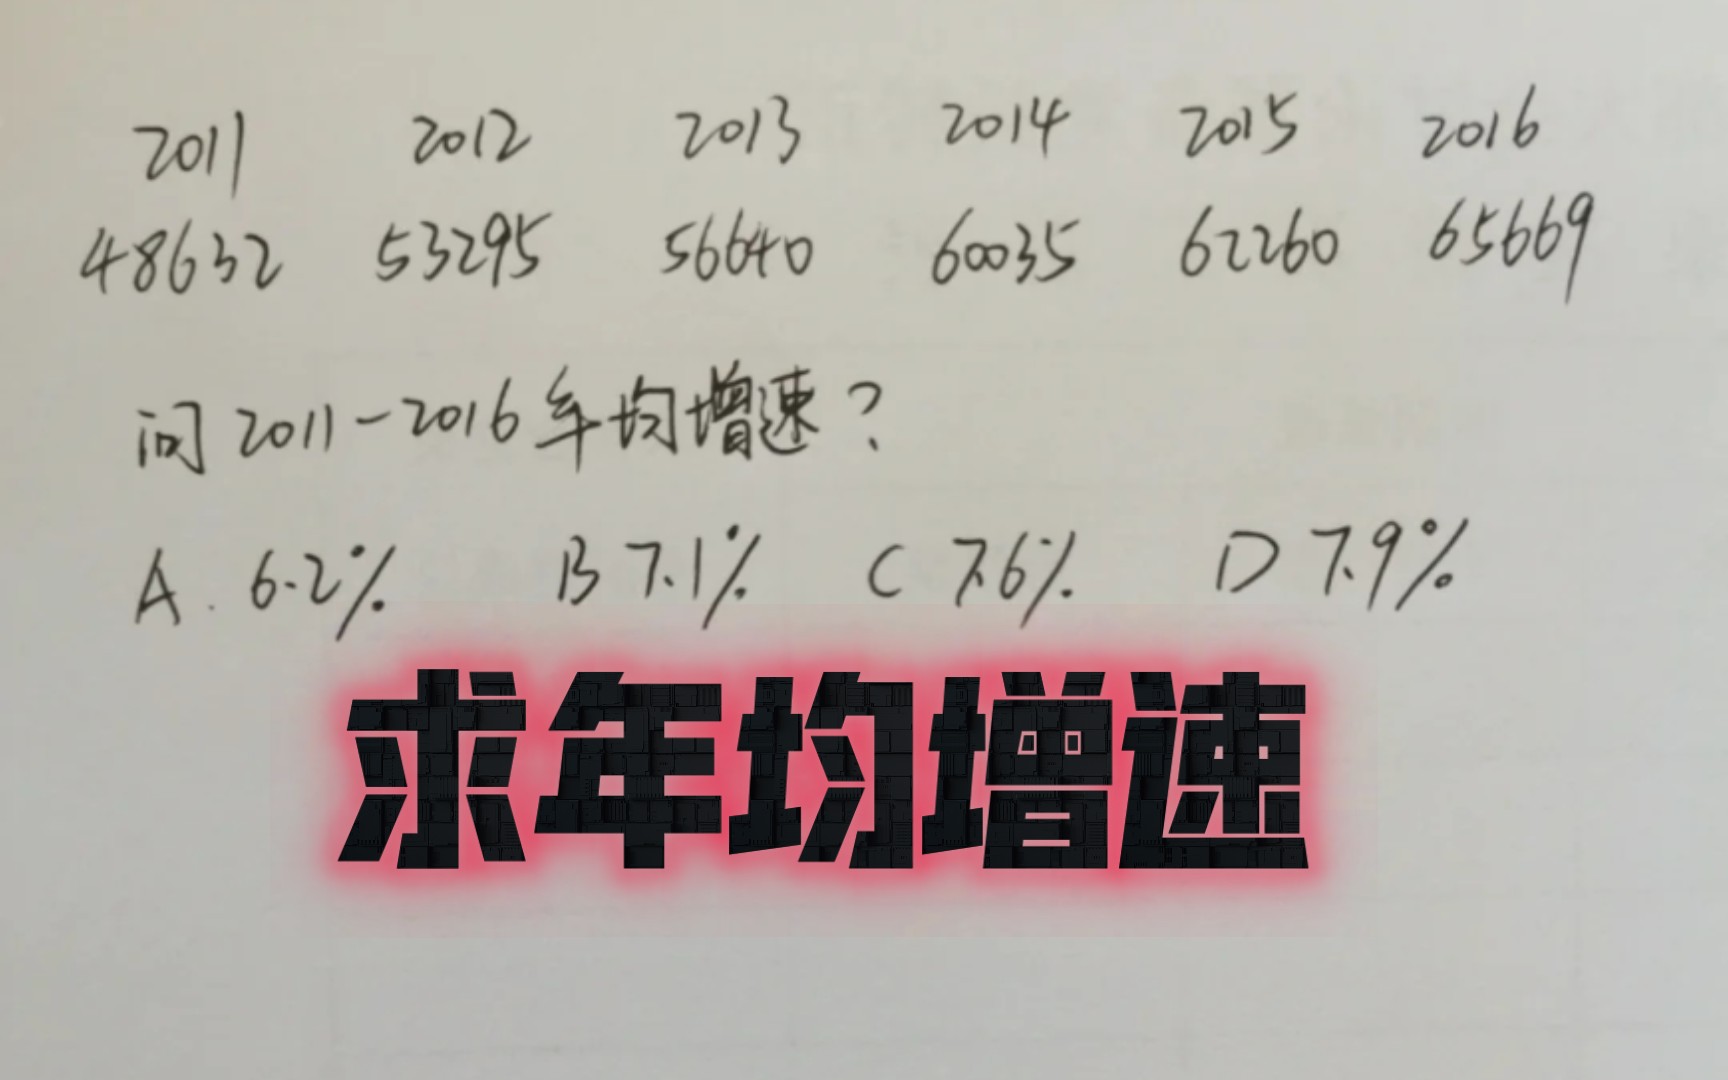 2011 2012 2013 2014 2015 2016
48632 53295 56640 60035 62260 65669
问2011-2016年均增速?
A. 6.2% B 7.1% C 7.6% D 7.9%
求年均增速